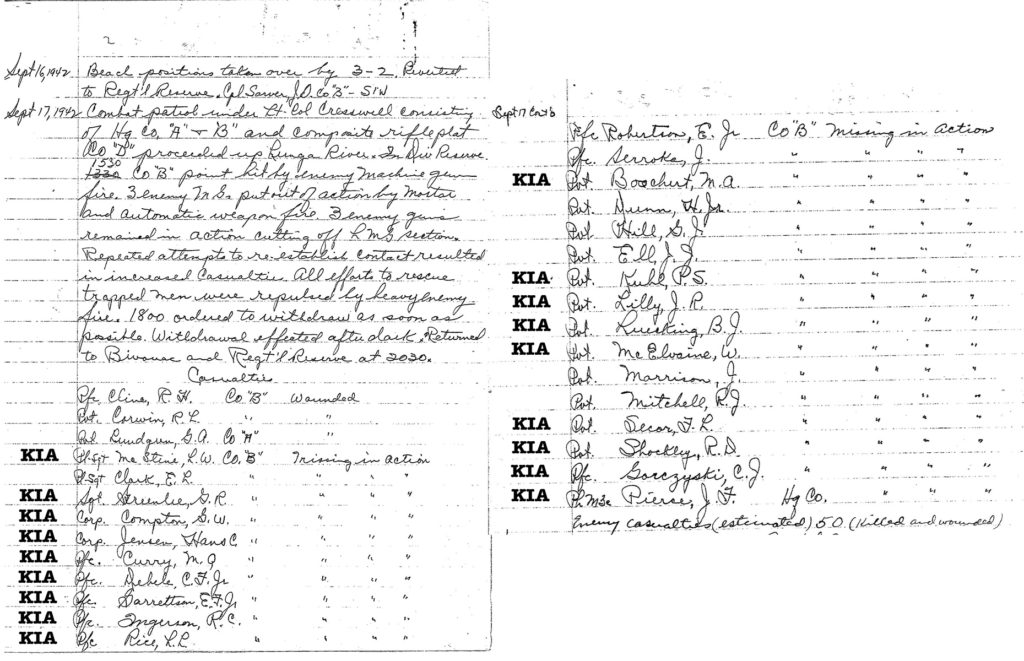 2
Sept 16, 1942 Beach positions taken over by 3-2. Reverted
to Regt'l Reserve. Cpl Sawer, J.D. Co "B" - SIW
Sept 17, 1942 Combat patrol under Lt Col Cresswell consisting
of Hq Co, "A" + "B" and composite rifle plat
Co "D" proceeded up Lunga River. In Div Reserve.
1530
1330 Co "B" point hit by enemy machine gun
fire. 3 enemy M.G.s put out of action by mortar
and automatic weapon fire. 3 enemy guns
remained in action cutting off L.M.G section.
Repeated attempts to re-establish contact resulted
in increased casualties. All efforts to rescue
trapped men were repulsed by heavy enemy
fire. 1800 ordered to withdraw as soon as
possible. Withdrawal effected after dark. Returned
to Bivouac and Regt'l Reserve at 2020.
Casualties
Pfc Cline, R.H. Co "B" Wounded
Pvt. Corwin, R.L. " "
Pvt. Lundgren, G.A. Co "A" "
KIA Pl-Sgt Mc Stine, L.W. Co. "B" Missing in action
Pl-Sgt Clark, E.L. " " " "
KIA Sgt. Greenlee, G.R. " " " "
KIA Corp. Compton, G.W. " " " "
KIA Corp. Jensen, Hans C " " " "
KIA Pfc. Curry, M.J " " " "
KIA Pfc. Debele, C.F. Jr " " " "
KIA Pfc. Garrettson, E.F. Jr " " " "
KIA Pfc. Ingerson, R.C. " " " "
KIA Pfc Rice, L.L. " " " "
Sept 17 Cont'd
Pfc Robertson, E. Jr Co "B" Missing in Action
Pfc. Serroka, J. " " " "
KIA Pvt. Boschert, M.A. " " " "
Pvt. Dunn, H. Jr. " " " "
Pvt. Hill, G.J. " " " "
Pvt. Ell, J.J. " " " "
KIA Pvt. Kuhl, P.S. " " " "
KIA Pvt. Lilly, J.R. " " " "
KIA Pvt. Luesking, B.J. " " " "
KIA Pvt. Mc Elvaine, W. " " " "
Pvt. Marrison, J. " " " "
Pvt. Mitchell, R.J. " " " "
KIA Pvt. Secor, F.L. " " " "
KIA Pvt. Shockley, R.D. " " " "
KIA Pfc. Gorczyski, C.J. " " " "
KIA Ph.M3c Pierse, J.F. Hq Co. " " "
Enemy casualties (estimated) 50 (Killed and wounded)